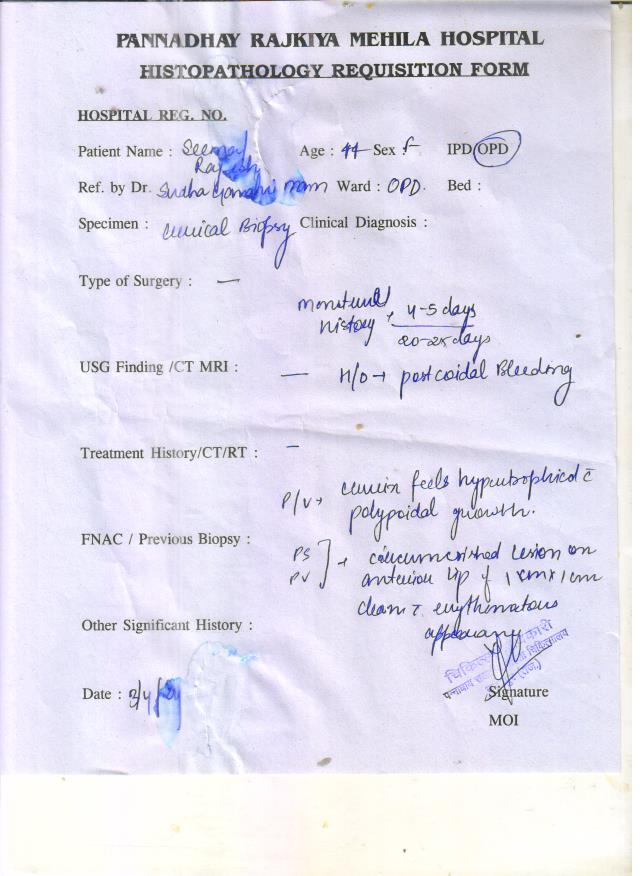 PANNADHAY RAJKIYA MEHILA HOSPITAL
HISTOPATHOLOGY REQUISITION FORM
HOSPITAL REG. NO.
Patient Name : Seema/ Age : 44 Sex f IPD/OPD
Ref. by Dr. Sudha Gandhi mam Ward : OPD. Bed :
Specimen : Cervical Biopsy Clinical Diagnosis :
Type of Surgery : —
Menstrual
history , 4-5 days
20-25 days
USG Finding /CT MRI : — H/O → postcoidal Bleeding
Treatment History/CT/RT : –
P/V → cervix feels hypertrophied c̄
polypoidal growth.
FNAC / Previous Biopsy :
PS
PV → lesion on
anterior lip of 1cm x 1cm
erythmatous
Other Significant History :
चिकित्सा
Date :
Signature
MOI